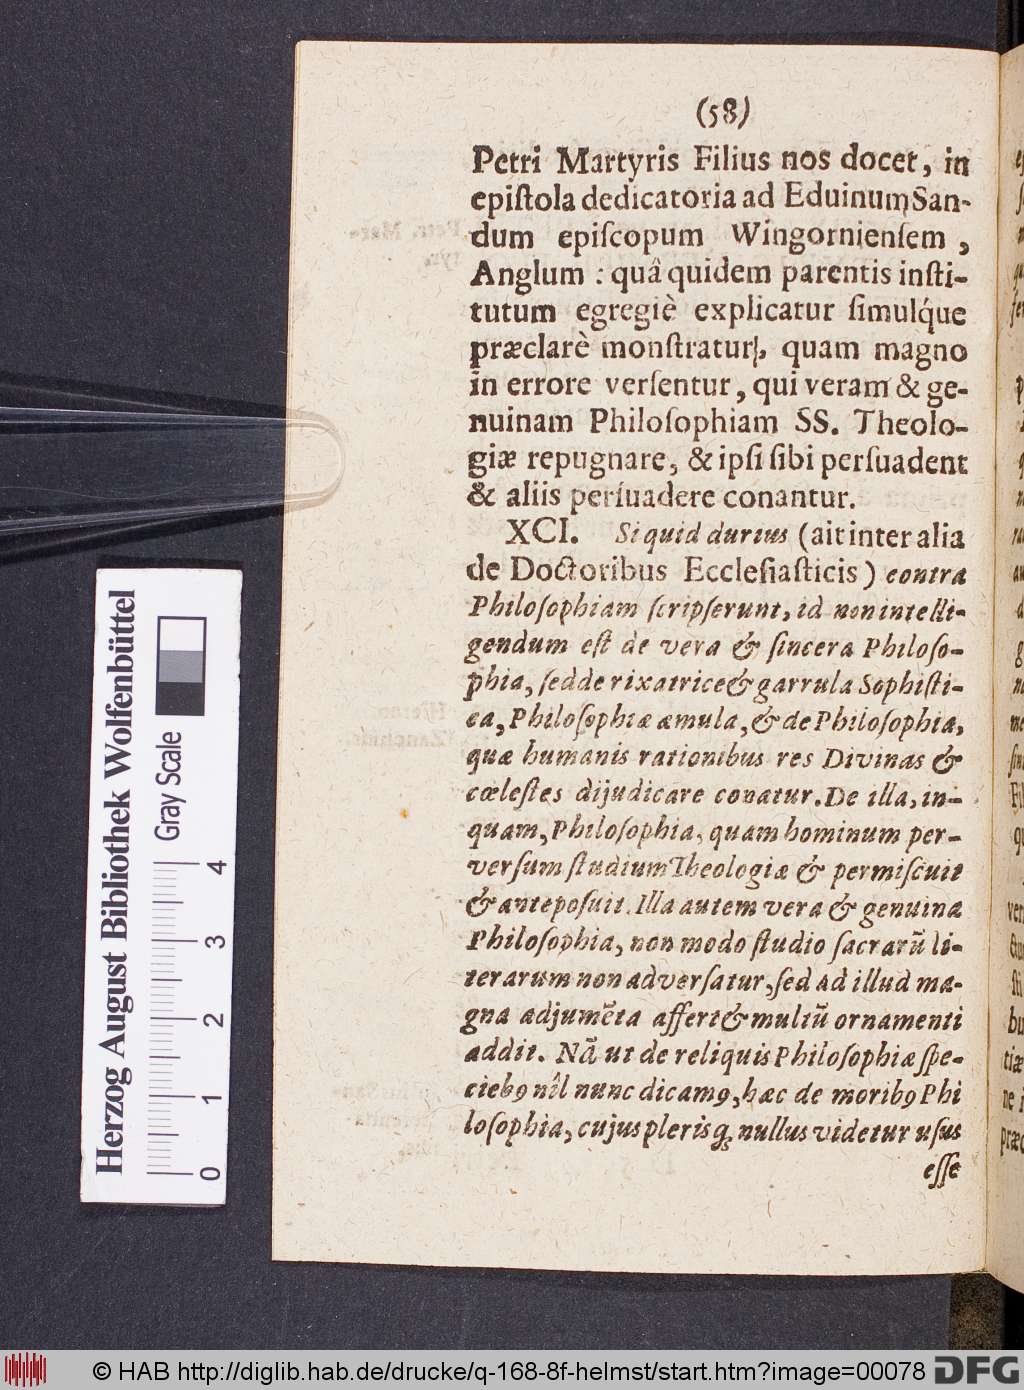 (58)
Petri Martyris Filius nos docet, in
epiſtola dedicatoria ad Eduinum San-
dum epiſcopum Wingornienſem,
Anglum: quâ quidem parentis inſti-
tutum egregiè explicatur ſimulq́ue
præclarè monſtratur, quam magno
in errore verſentur, qui veram & ge-
nuinam Philoſophiam SS. Theolo-
giæ repugnare, & ipſi ſibi perſuadent
& aliis perſuadere conantur.
XCI. Si quid durius (ait inter alia
de Doctoribus Eccleſiaſticis) contra
Philoſophiam ſcripſerunt, id non intelli-
gendum eſt de vera & ſincera Philoſo-
phia, ſed de rixatrice & garrula Sophiſti-
ca, Philoſophiæ æmula, & de Philoſophia,
quæ humanis rationibus res Divinas &
cœleſtes dijudicare conatur. De illa, in-
quam, Philoſophia, quam hominum per-
verſum ſtudium Theologiæ & permiſcuit
& antepoſuit. Illa autem vera & genuina
Philoſophia, non modo ſtudio ſacrarū li-
terarum non adverſatur, ſed ad illud ma-
gna adjumēta affert & multū ornamenti
addit. Nā ut de reliquis Philoſophiæ ſpe-
cieb9 nîl nunc dicam9, hæc de morib9 Phi
loſophia, cujus plerisq; nullus videtur uſus
eſſe
Herzog August Bibliothek Wolfenbüttel
Gray Scale
0 1 2 3 4
© HAB http://diglib.hab.de/drucke/q-168-8f-helmst/start.htm?image=00078
DFG